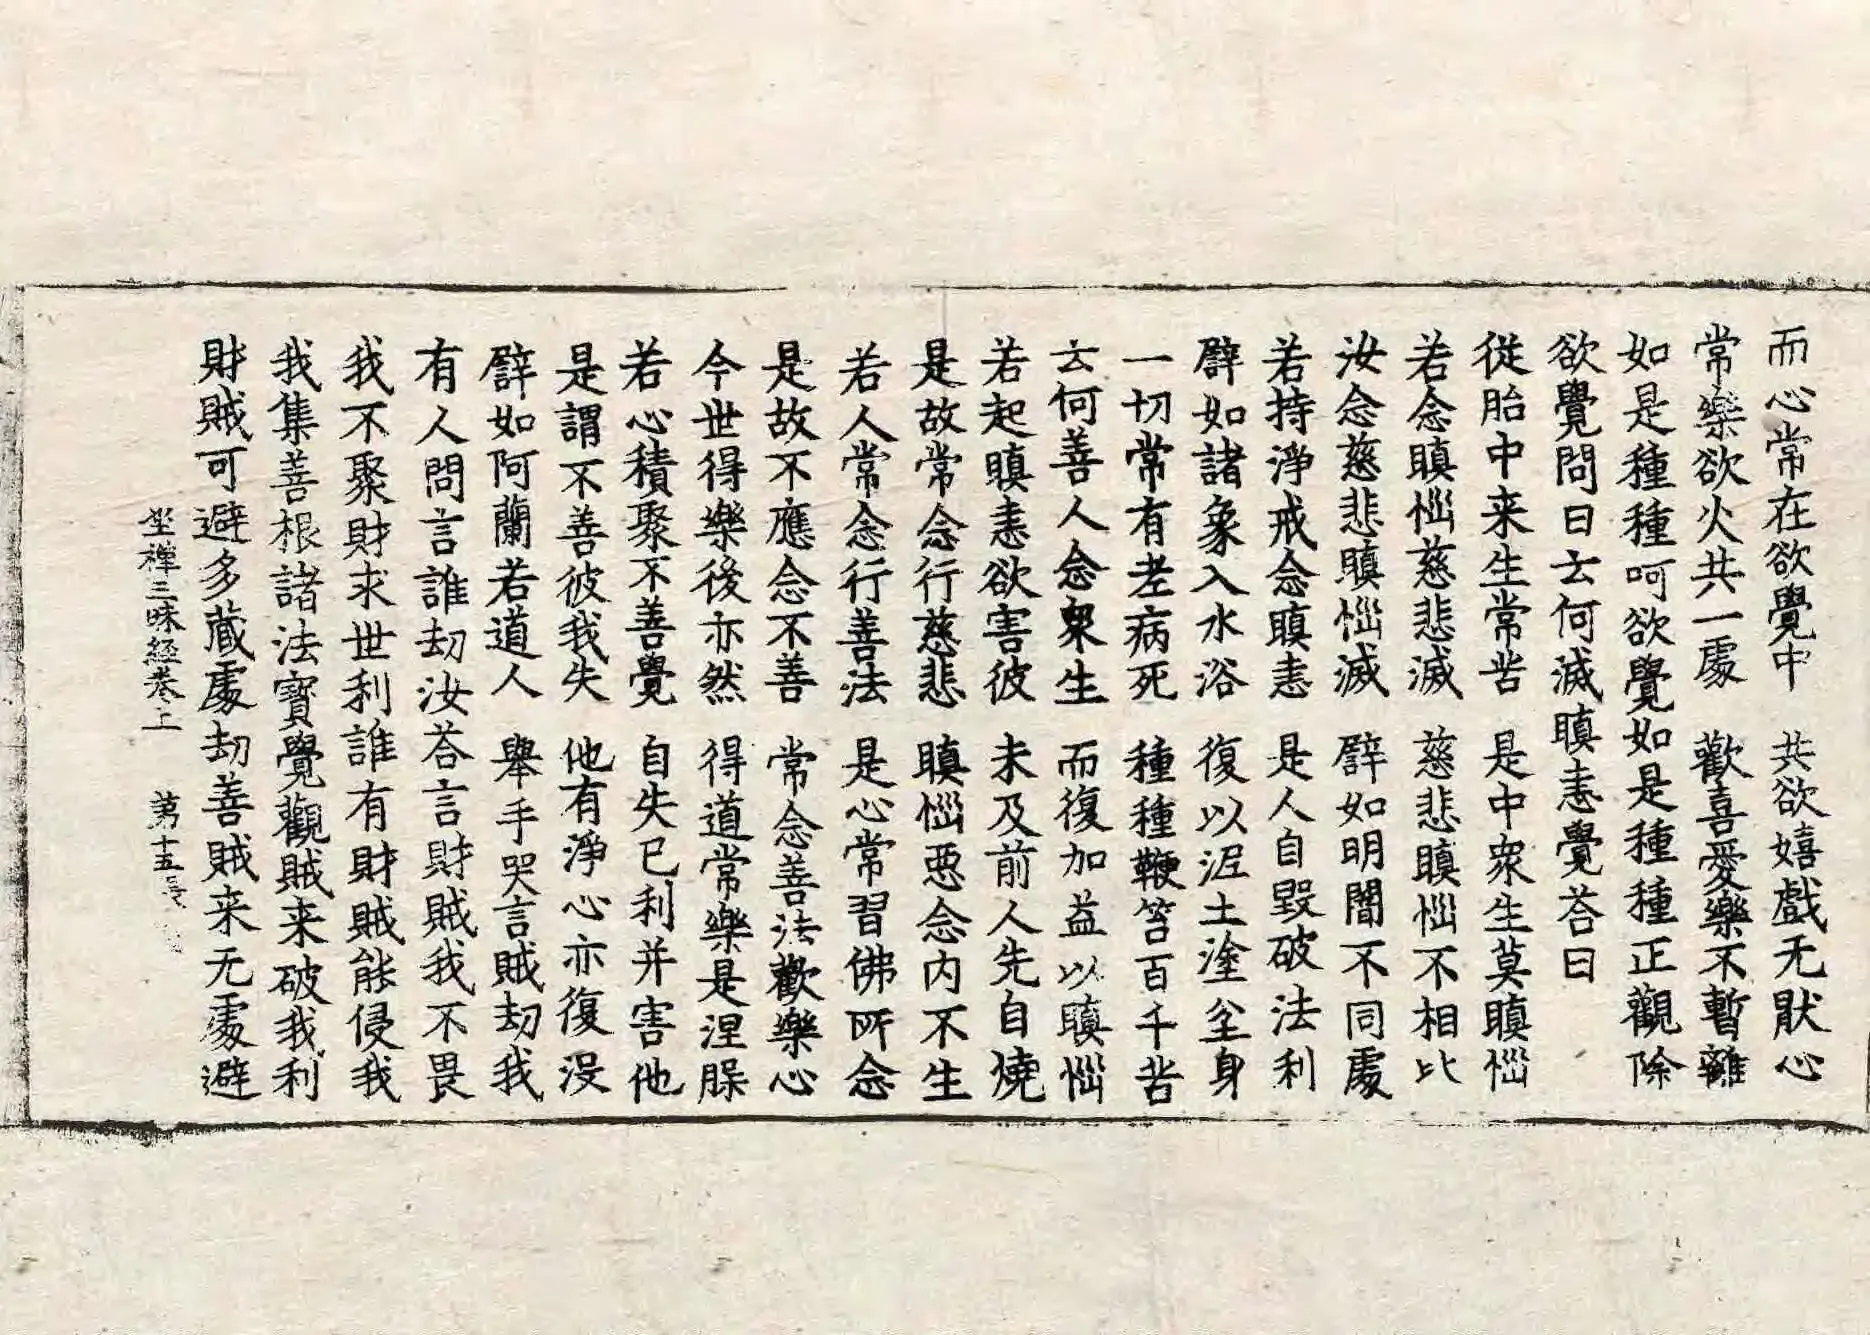 而心常在欲覺中　共欲嬉戲无猒心
常樂欲火共一處　歡喜愛樂不暫離
如是種種呵欲覺如是種種正觀除
欲覺問曰云何滅瞋恚覺荅曰
從胎中来生常苦　是中衆生莫瞋惱
若念瞋惱慈悲滅　慈悲瞋惱不相比
汝念慈悲瞋惱滅　譬如明闇不同處
若持淨戒念瞋恚　是人自毀破法利
譬如諸象入水浴　復以泥土塗坌身
一切常有老病死　種種鞭笞百千苦
云何善人念衆生　而復加益以瞋惱
若起瞋恚欲害彼　未及前人先自燒
是故常念行慈悲　瞋惱惡念内不生
若人常念行善法　是心常習佛所念
是故不應念不善　常念善法歡樂心
今世得樂後亦然　得道常樂是涅槃
若心積聚不善覺　自失已利并害他
是謂不善彼我失　他有淨心亦復沒
譬如阿蘭若道人　舉手哭言賊劫我
有人問言誰劫汝荅言財賊我不畏
我不聚財求世利誰有財賊能侵我
我集善根諸法寶覺觀賊来破我利
財賊可避多藏處劫善賊来无處避
坐禪三昧經卷上　第十五張